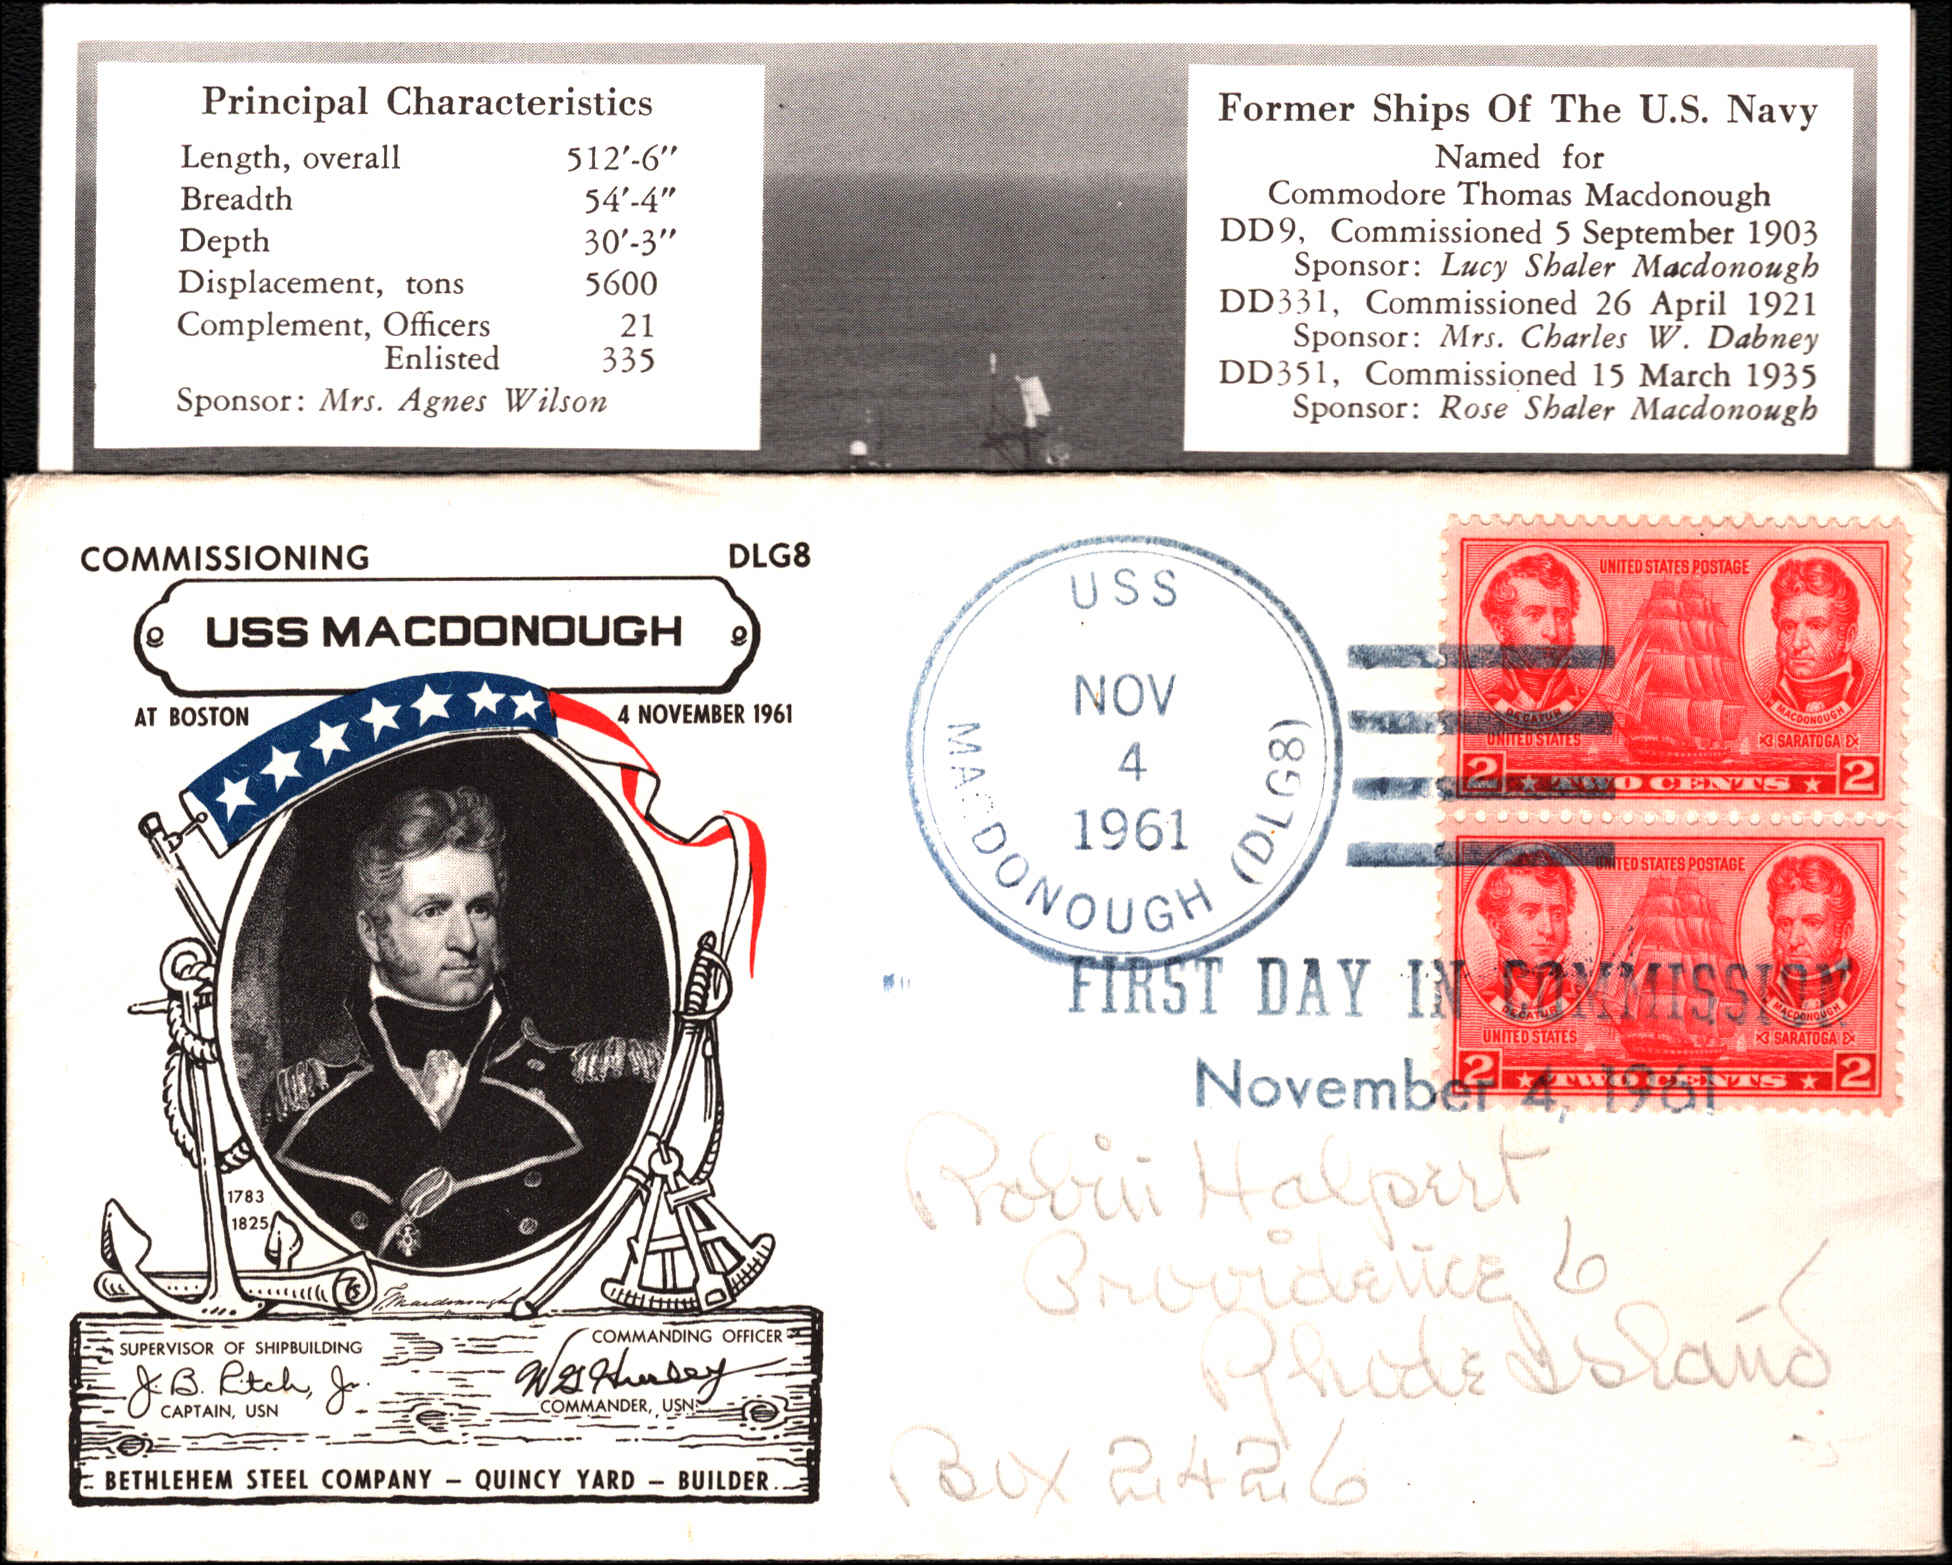 Principal Characteristics
Length, overall 512'-6"
Breadth 54'-4"
Depth 30'-3"
Displacement, tons 5600
Complement, Officers 21
Enlisted 335
Sponsor: Mrs. Agnes Wilson
Former Ships Of The U.S. Navy
Named for
Commodore Thomas Macdonough
DD9, Commissioned 5 September 1903
Sponsor: Lucy Shaler Macdonough
DD331, Commissioned 26 April 1921
Sponsor: Mrs. Charles W. Dabney
DD351, Commissioned 15 March 1935
Sponsor: Rose Shaler Macdonough
COMMISSIONING DLG8
USS MACDONOUGH
AT BOSTON 4 NOVEMBER 1961
1783
1825
T. Macdonough
SUPERVISOR OF SHIPBUILDING
J. B. Fitch, Jr.
CAPTAIN, USN
COMMANDING OFFICER
COMMANDER, USN
BETHLEHEM STEEL COMPANY – QUINCY YARD – BUILDER
USS
NOV
4
1961
MACDONOUGH (DLG8)
UNITED STATES POSTAGE
DECATUR
MACDONOUGH
UNITED STATES
SARATOGA
2 TWO CENTS 2
UNITED STATES POSTAGE
DECATUR
MACDONOUGH
UNITED STATES
SARATOGA
2 TWO CENTS 2
FIRST DAY IN COMMISSION
November 4, 1961
Robin Halpert
Providence 6
Rhode Island
Box 2426